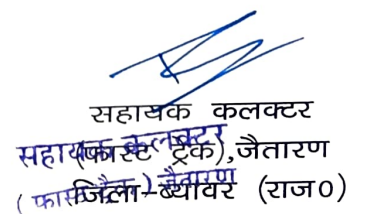 सहायक कलक्टर
(फास्ट ट्रेक), जैतारण
जिला-ब्यावर (राज०)
सहायक कलक्टर
( फास्ट ट्रैक ) जैतारण